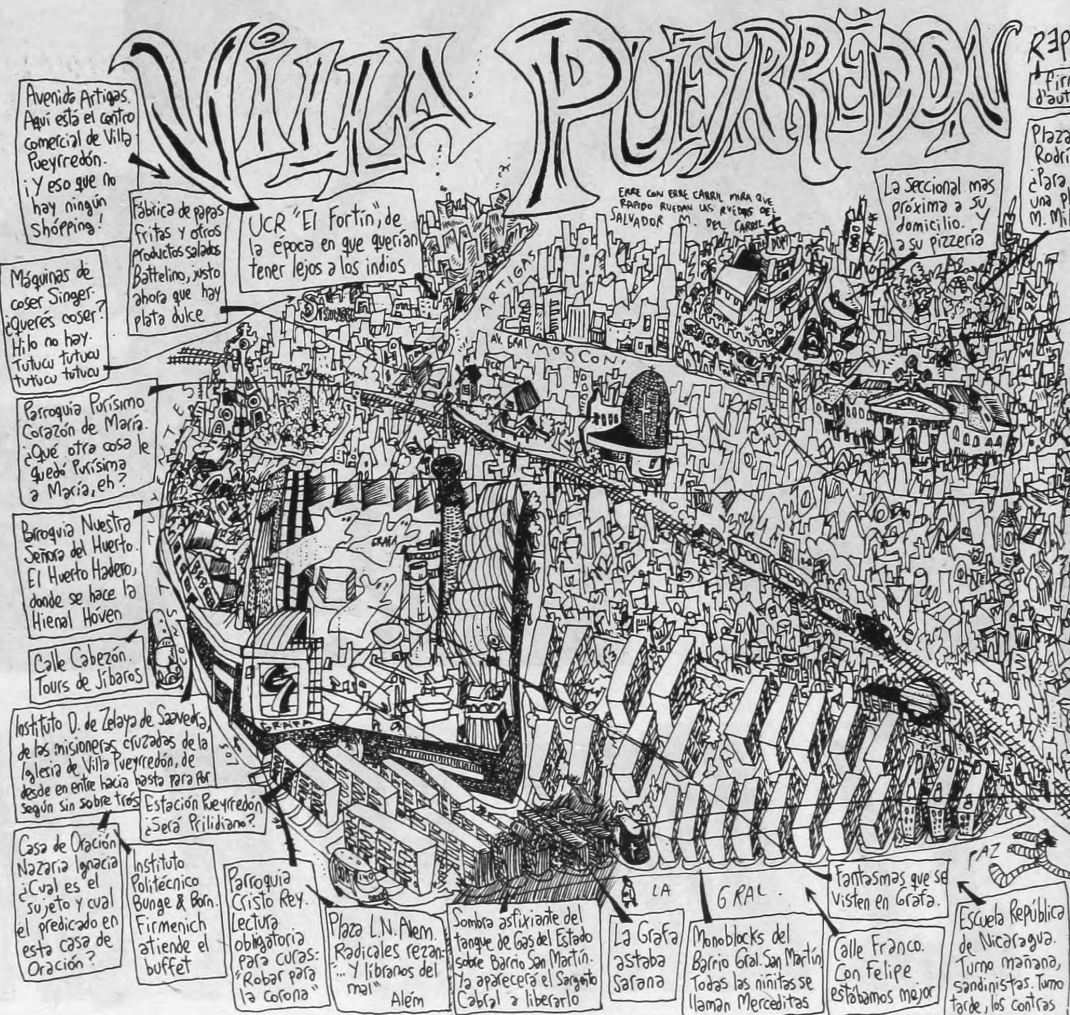 VILLA PUEYRREDON
Avenida Artigas.
Aquí está el centro
comercial de Villa
Pueyrredón.
¡Y eso que no
hay ningún
shópping!
Fábrica de papas
fritas y otros
productos salados
Battelino, justo
ahora que hay
plata dulce
UCR "El Fortín", de
la época en que querían
tener lejos a los indios
ERRE CON ERRE CARRIL MIRA QUE
RAPIDO RUEDAN LAS RUEDAS DEL
SALVADOR M. DEL CARRIL
La seccional mas
próxima a su
domicilio. Y
a su pizzería
REP
Firm
d'aut
Plaza
Rodrí
¿Para
una pl
M. Mil
Máquinas de
coser Singer.
¿Querés coser?
Hilo no hay.
Tutucu tutucu
tutucu tutucu
Singer
ARTIGAS
AV. GRAL MOSCONI
Parroquia Purísimo
Corazón de María.
¿Qué otra cosa le
quedó Purísima
a María, eh?
Parroquia Nuestra
Señora del Huerto.
El Huerto Hadero,
donde se hace la
Hienal Hóven
Calle Cabezón.
Tours de Jíbaros
GRAFA
GRAFA
Instituto D. de Zelaya de Saavedra,
de las misioneras cruzadas de la
Iglesia de Villa Pueyrredón, de
desde en entre hacia hasta para por
según sin sobre trás
Estación Pueyrredón
¿Será Prilidiano?
Casa de Oración
Nazaria Ignacia
¿Cual es el
sujeto y cual
el predicado en
esta casa de
Oración?
Instituto
Politécnico
Bunge & Born.
Firmenich
atiende el
buffet
Parroquia
Cristo Rey.
Lectura
obligatoria
para curas:
"Robar para
la corona"
Plaza L.N. Alem.
Radicales rezan:
"... Y líbranos del
mal"
Além
Sombra asfixiante del
tanque de Gas del Estado
sobre Barrio San Martín.
Ya aparecerá el Sargento
Cabral a liberarlo
La Grafa
astaba
sarana
LA GRAL. PAZ
Monoblocks del
Barrio Gral. San Martín
Todas las niñitas se
llaman Merceditas
Fantasmas que se
visten en Grafa.
Calle Franco.
Con Felipe
estábamos mejor
Escuela República
de Nicaragua.
Turno mañana,
sandinistas. Turno
tarde, los contras